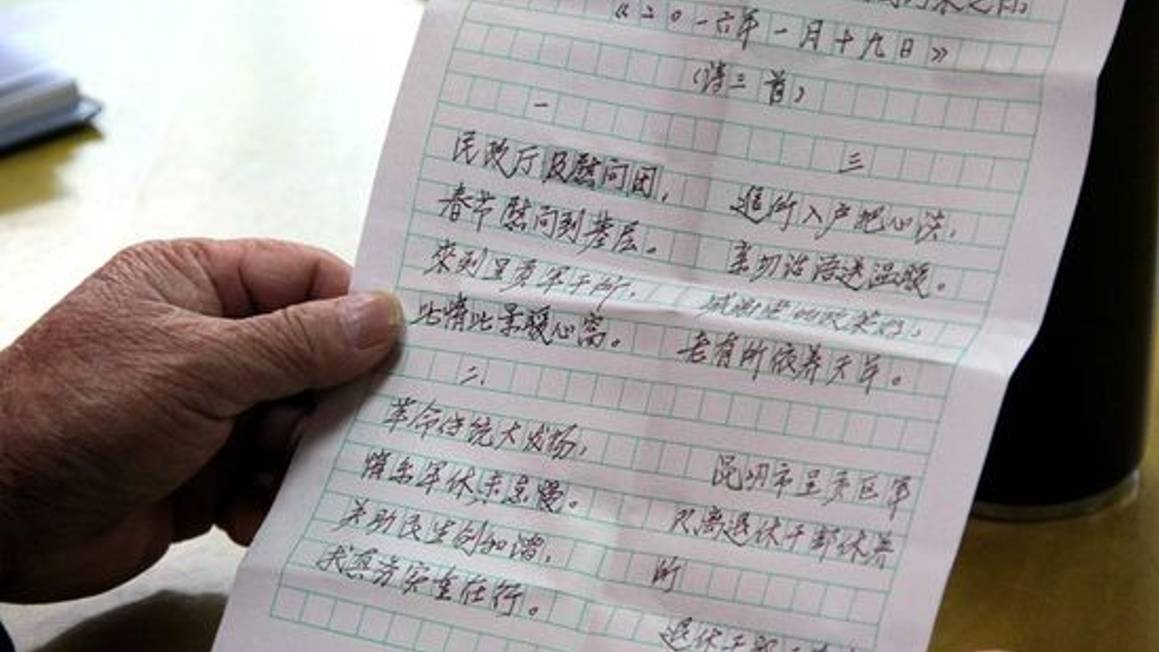 《二〇一六年一月十九日》
(诗三首)
一
民政厅及慰问团，
春节慰问到基层。
来到呈贡军干所，
此情此景暖心窝。
二、
革命传统大发扬，
情系军休未怠慢。
关助民生创和谐，
求真务实重在行。
三
进所入户把心谈，
亲切话语送温暖。
感谢党的政策好，
老有所依养天年。
昆明市呈贡区军
队离退休干部休养
所
退休干部